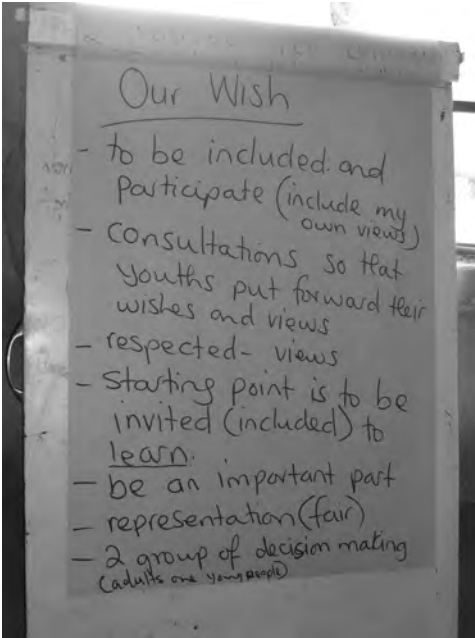 Our Wish
- to be included and
participate (include my
own views)
- consultations so that
youths put forward their
wishes and views
- respected - views
- Starting point is to be
invited (included) to
learn.
- be an important part
- representation (fair)
- 2 group of decision making
(adults one young people)